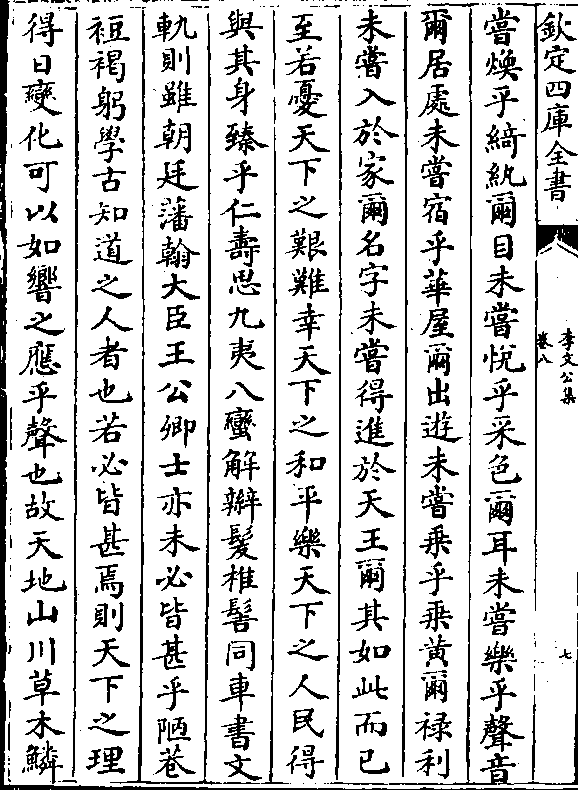 欽定四庫全書
李文公集
卷八
七
嘗煥乎綺紈爾目未嘗悅乎采色爾耳未嘗樂乎聲音
爾居處未嘗宿乎華屋爾出遊未嘗乗乎乗黄爾禄利
未嘗入於家爾名字未嘗得進於天王爾其如此而已
至若憂天下之艱難幸天下之和平樂天下之人民得
與其身臻乎仁壽思九夷八蠻解辮髮椎髻同車書文
軌則雖朝廷藩翰大臣王公卿士亦未必皆甚乎陋巷
裋褐躬學古知道之人者也若必皆甚焉則天下之理
得日變化可以如響之應乎聲也故天地山川草木鱗